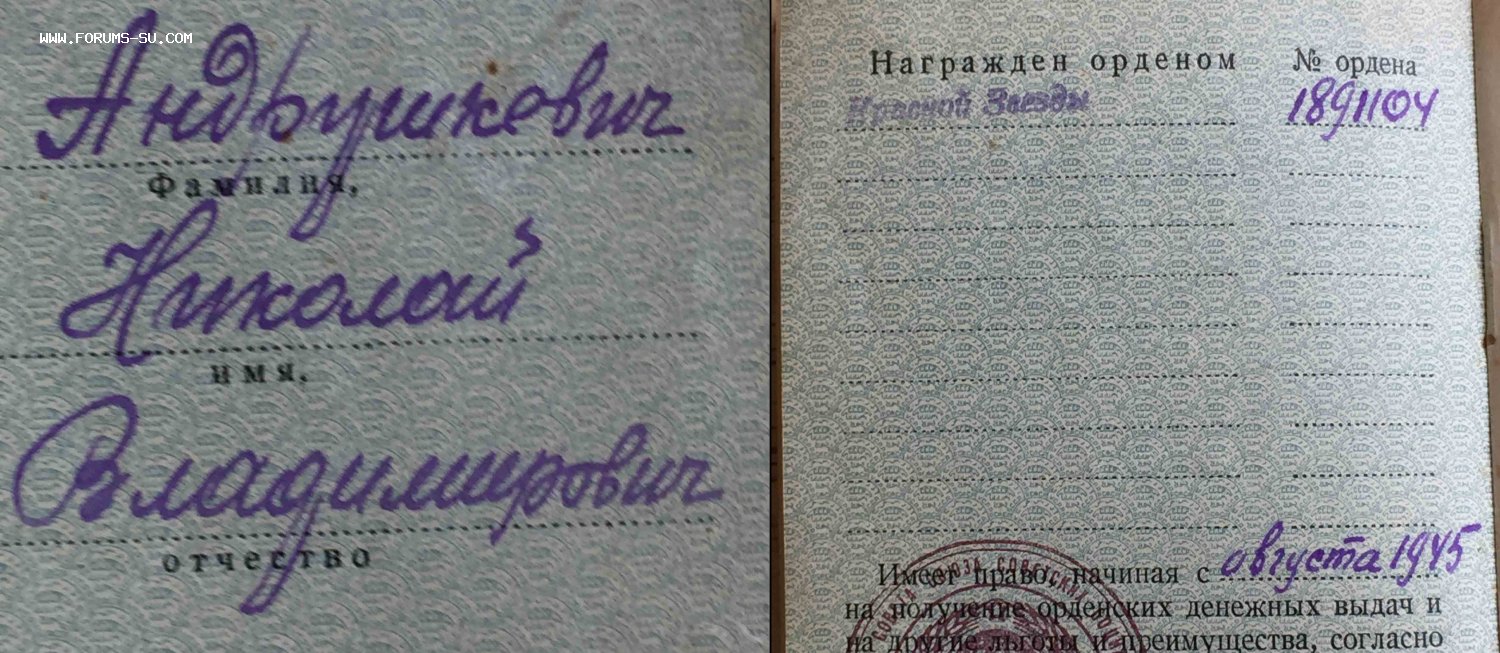 WWW.FORUMS-SU.COM
Андрушкевич
Фамилия.
Николай
имя.
Владимирович
отчество
Награжден орденом № ордена
Красной Звезды 1891104
Имеет право, начиная с августа 1945
на получение орденских денежных выдач и
на другие льготы и преимущества, согласно